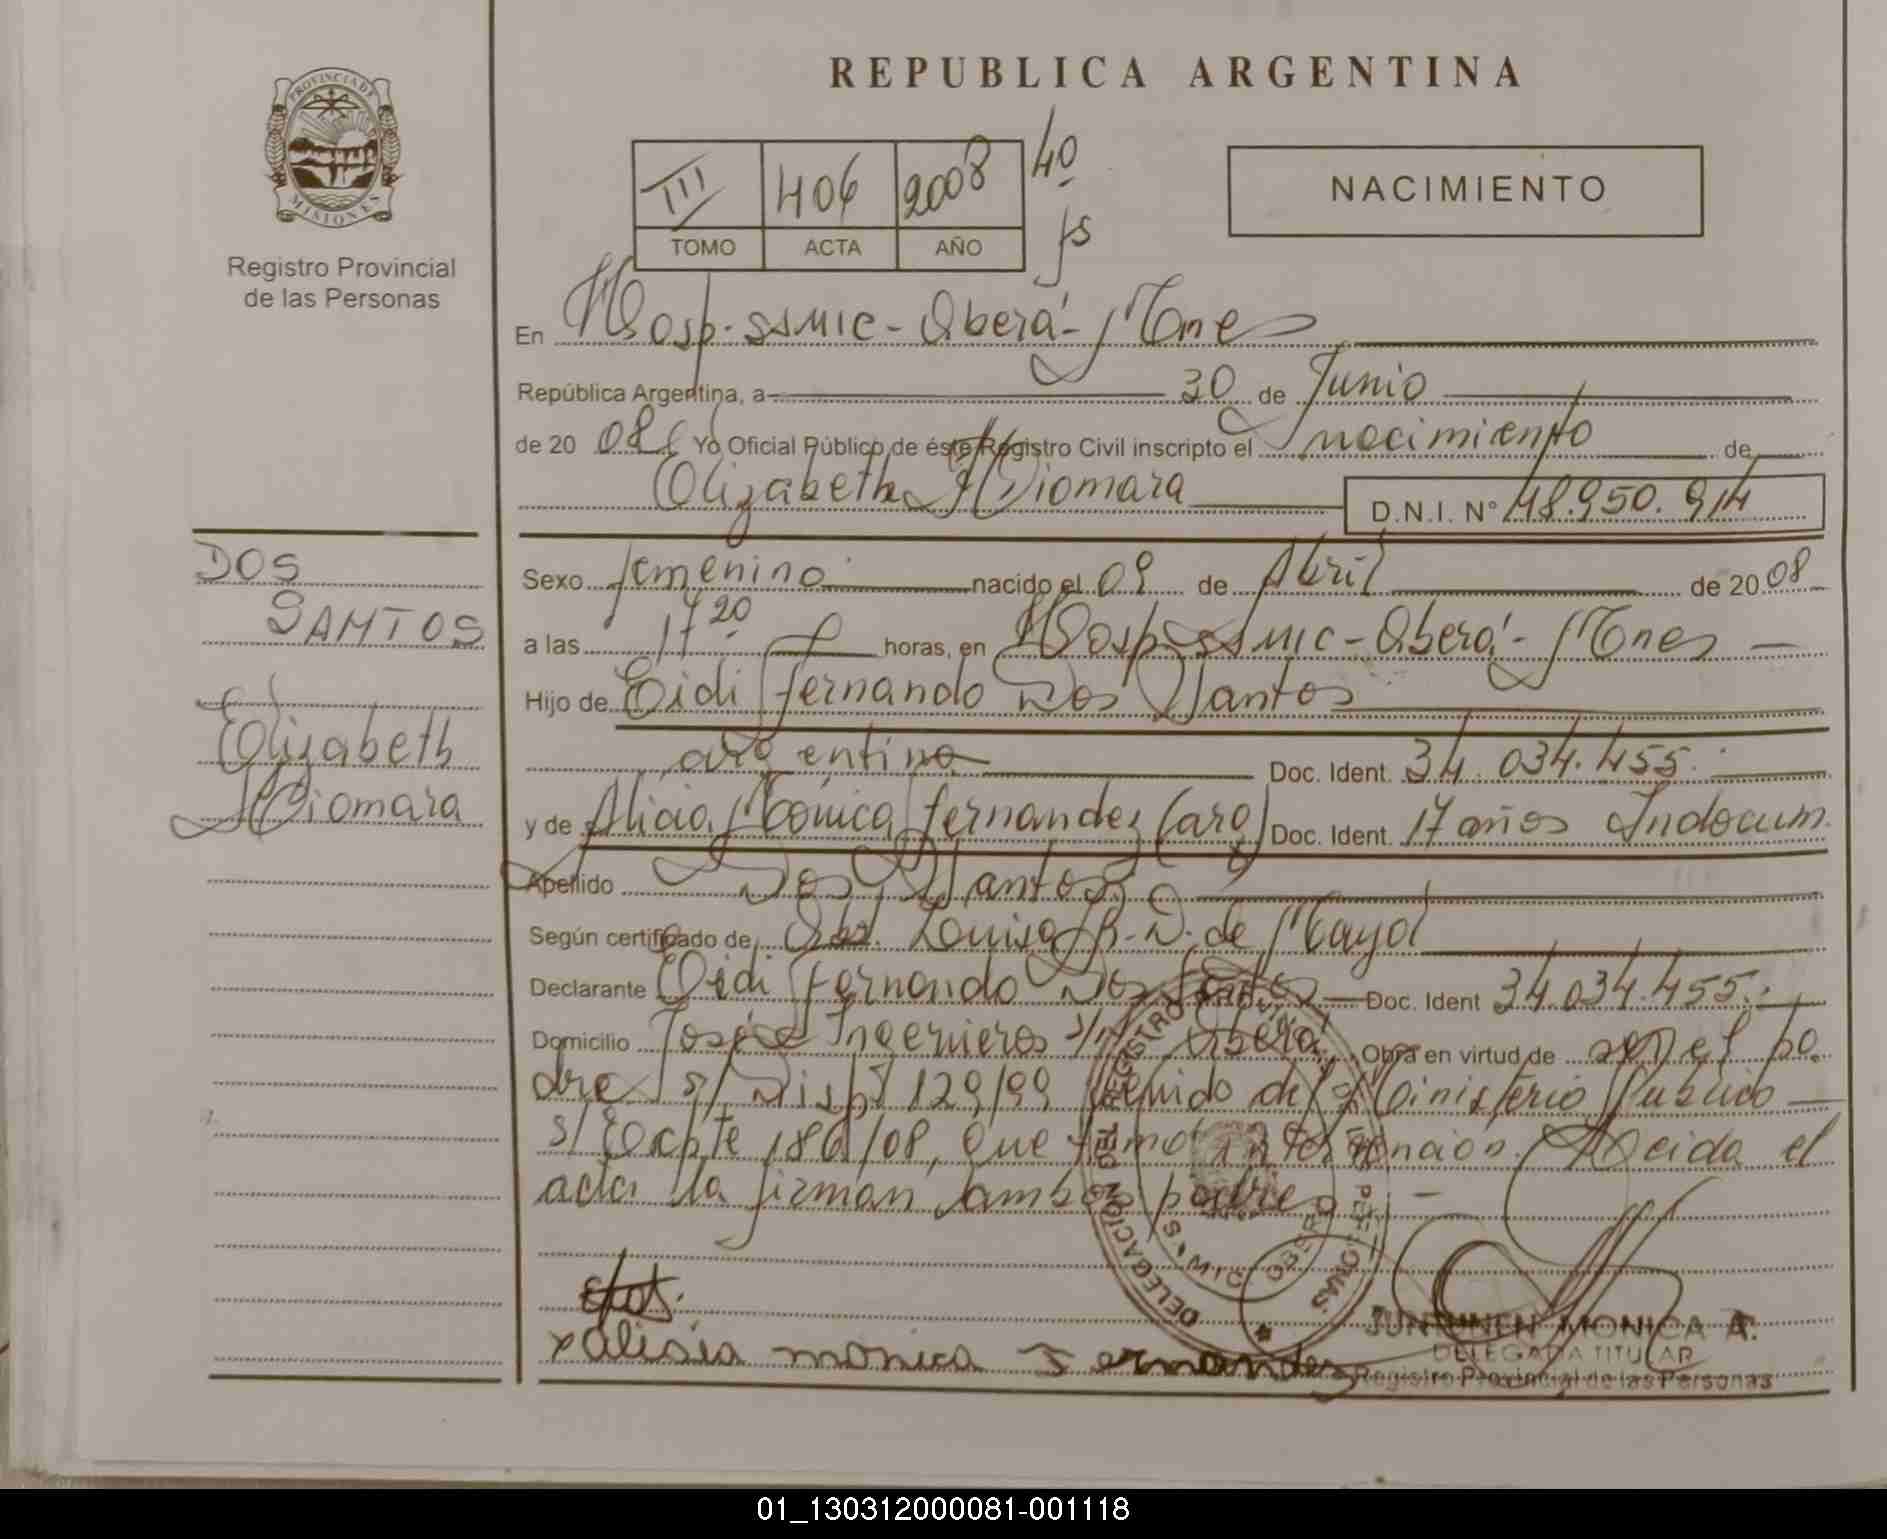 REPUBLICA ARGENTINA
PROVINCIA DE
MISIONES
Registro Provincial
de las Personas
III 406 2008 40
TOMO ACTA AÑO js
NACIMIENTO
En Hosp. SSMIC - Oberá - Mnes
República Argentina, a 30 de Junio
de 20 08 Yo Oficial Público de éste Registro Civil inscripto el nacimiento de
Elizabeth Xiomara D.N.I. N° 48.950.914
DOS
SANTOS
Elizabeth
Xiomara
Sexo femenino nacido el 09 de Abril de 2008
a las 17 20 horas, en Hosp. SSMIC - Oberá - Mnes
Hijo de Eidi Fernando Dos Santos
argentino Doc. Ident. 34.034.455.
y de Alicia Mónica Fernandez (arg) Doc. Ident. 17 años Indocum.
Apellido Dos Santos
Según certificado de Obst. Louisa B. D. de Mayol
Declarante Eidi Fernando Dos Santos Doc. Ident 34.034.455.
Domicilio José Ingenieros s/n Oberá, Obra en virtud de ser el pa
dre s/ Disp. 129/99 del Ministerio Publico
s/ Expte 186/08, que tomó intervención. Leida el
acta la firman ambos padres. -
DELEGACION DEL REGISTRO
S.S.M.I.C. OBERA
x alisia monica Fernandez
JUNTUNEN MONICA A.
DELEGADA TITULAR
Registro Provincial de las Personas
01_130312000081-001118